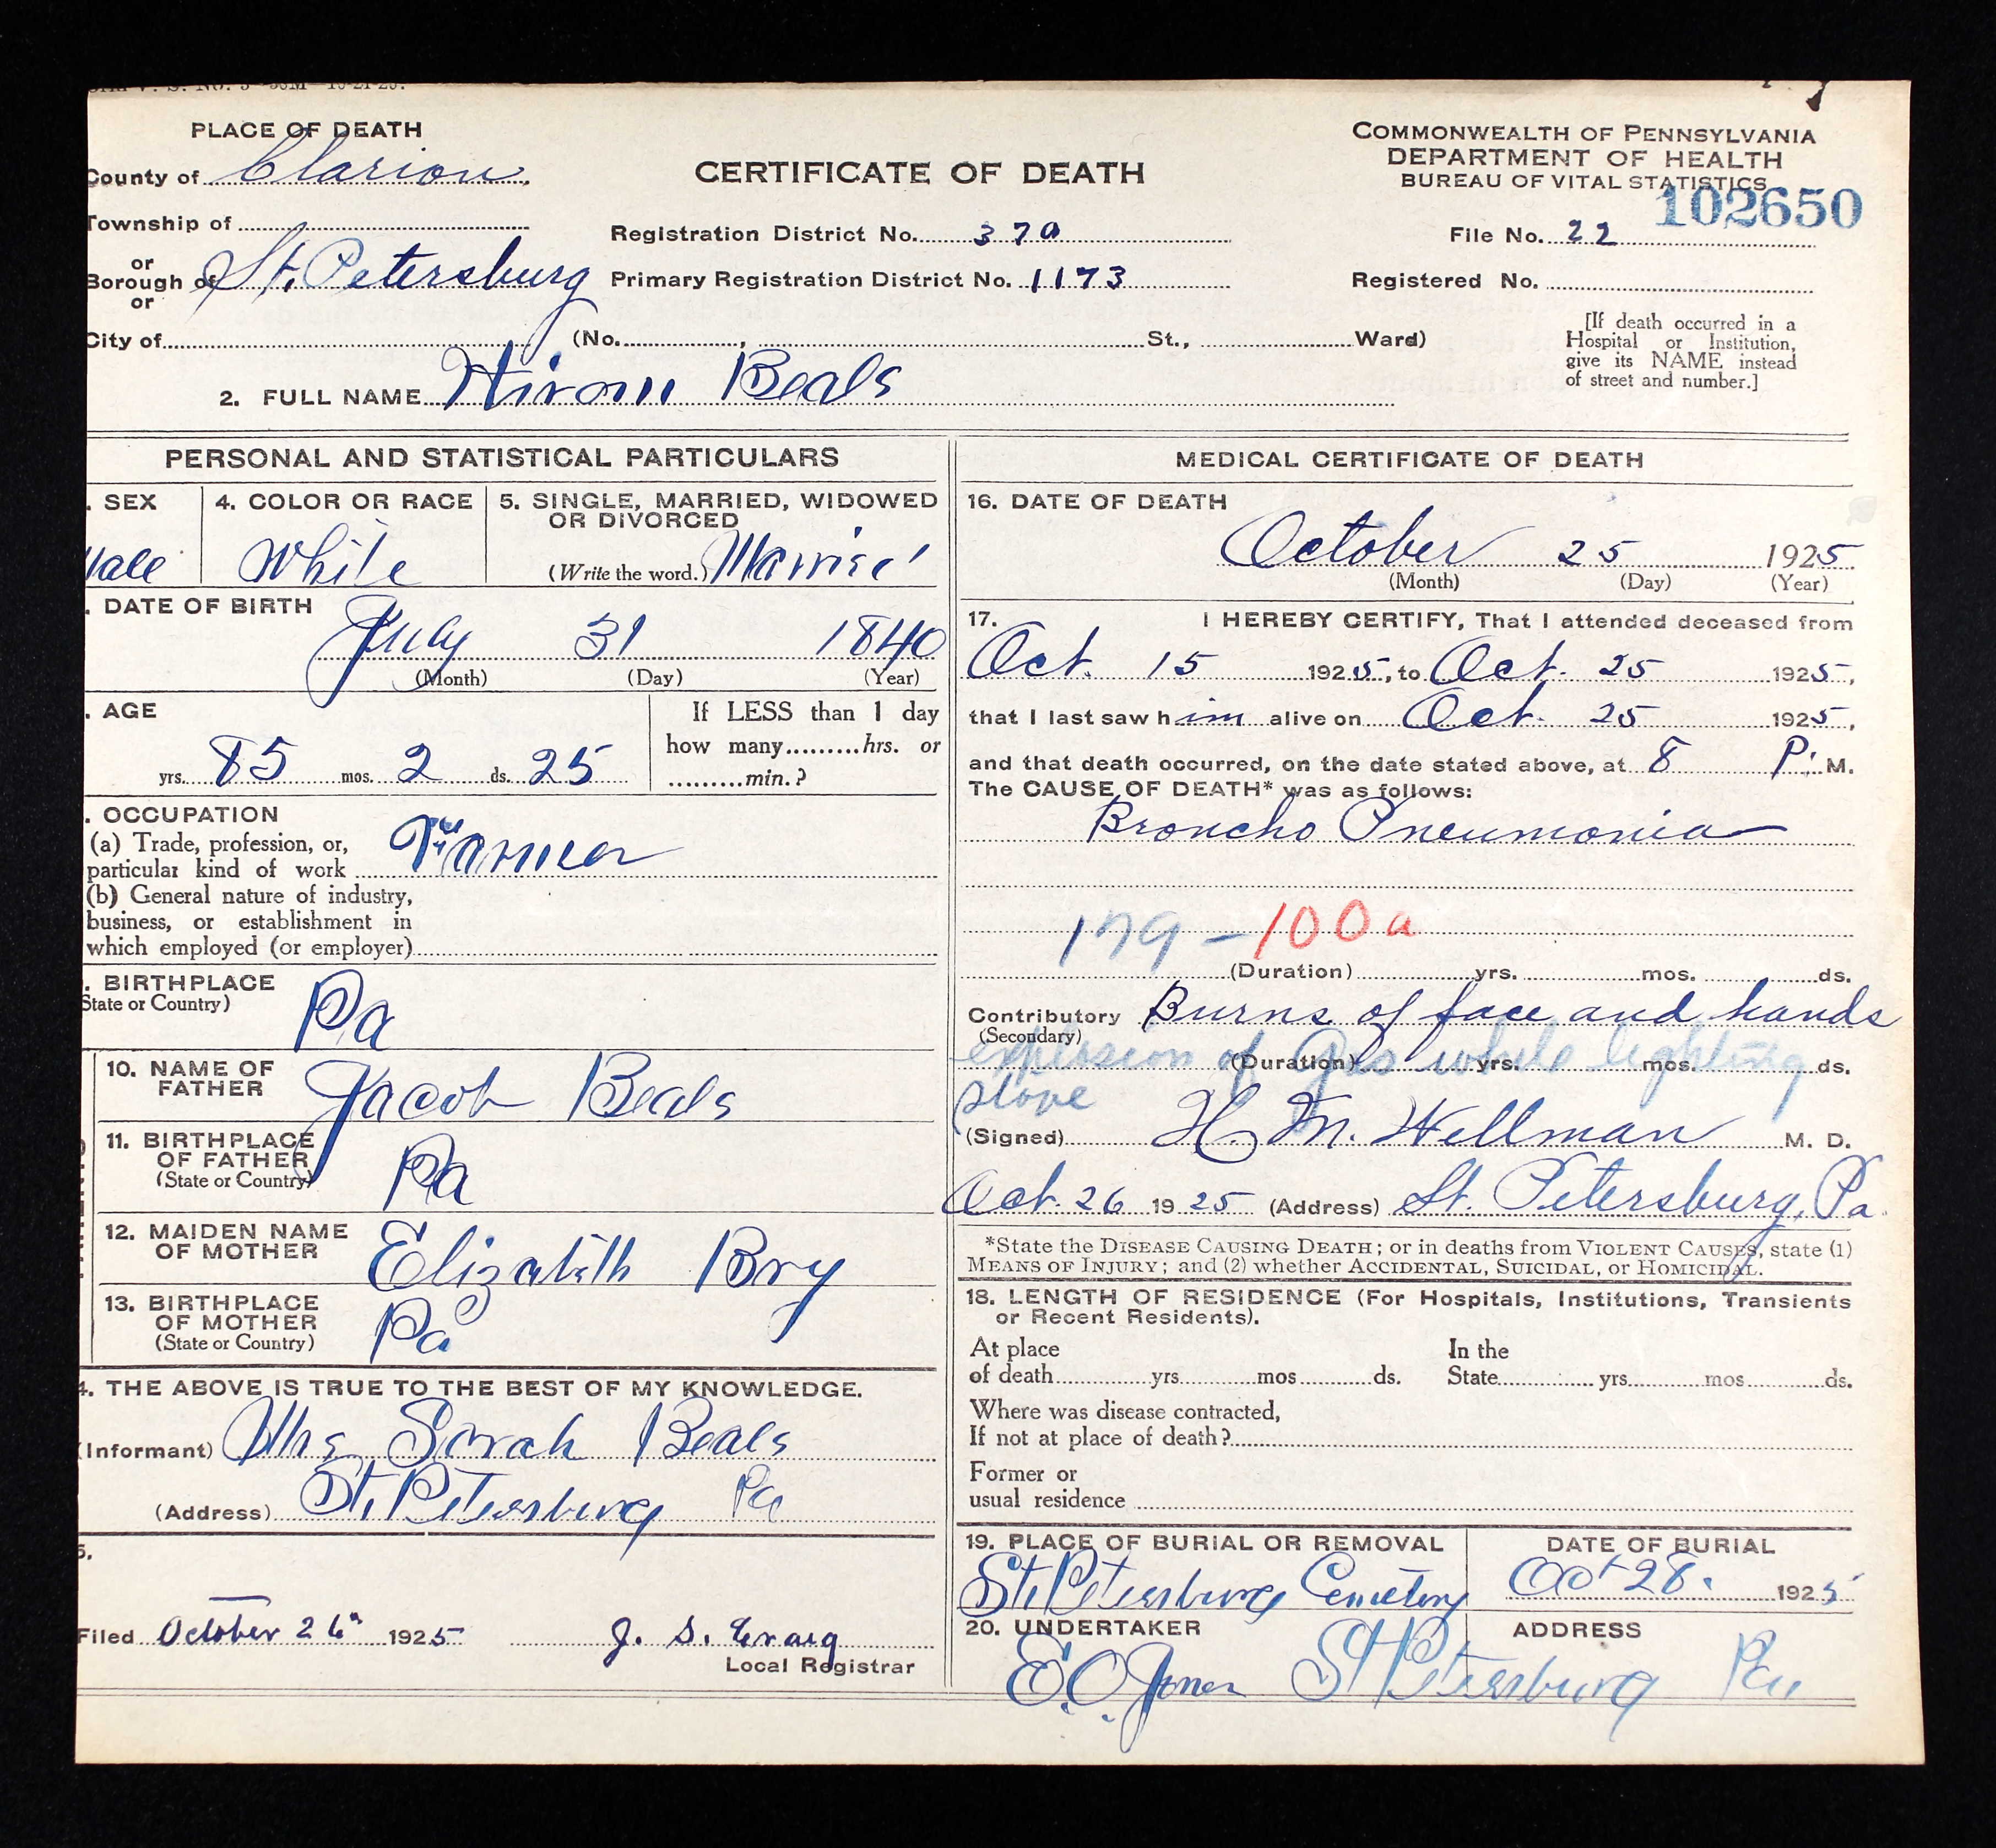 PLACE OF DEATH
County of Clarion
Township of
or
Borough of St. Petersburg
or
City of (No. , St., Ward)
CERTIFICATE OF DEATH
Registration District No. 370
Primary Registration District No. 1173
COMMONWEALTH OF PENNSYLVANIA
DEPARTMENT OF HEALTH
BUREAU OF VITAL STATISTICS
102650
File No. 22
Registered No.
[If death occurred in a
Hospital or Institution,
give its NAME instead
of street and number.]
2. FULL NAME Hiram Beals
PERSONAL AND STATISTICAL PARTICULARS
. SEX
Male
4. COLOR OR RACE
White
5. SINGLE, MARRIED, WIDOWED
OR DIVORCED
(Write the word.) Married
. DATE OF BIRTH
July 31 1840
(Month) (Day) (Year)
. AGE
yrs. 85 mos. 2 ds. 25
If LESS than 1 day
how many.........hrs. or
.........min.?
. OCCUPATION
(a) Trade, profession, or,
particular kind of work Farmer
(b) General nature of industry,
business, or establishment in
which employed (or employer)
. BIRTHPLACE
State or Country)
Pa
10. NAME OF
FATHER
Jacob Beals
11. BIRTHPLACE
OF FATHER
(State or Country)
Pa
12. MAIDEN NAME
OF MOTHER
Elizabeth Bry
13. BIRTHPLACE
OF MOTHER
(State or Country)
Pa
4. THE ABOVE IS TRUE TO THE BEST OF MY KNOWLEDGE.
(Informant) Mrs Sarah Beals
(Address) St. Petersburg Pa
5.
Filed October 26" 1925 J. S. Craig
Local Registrar
MEDICAL CERTIFICATE OF DEATH
16. DATE OF DEATH
October 25 1925
(Month) (Day) (Year)
17. I HEREBY CERTIFY, That I attended deceased from
Oct. 15 1925, to Oct. 25 1925,
that I last saw him alive on Oct. 25 1925,
and that death occurred, on the date stated above, at 8 P. M.
The CAUSE OF DEATH* was as follows:
Broncho Pneumonia
179 - 100a
(Duration) yrs. mos. ds.
Contributory Burns of face and hands
(Secondary)
explosion of gas while lighting
(Duration) yrs. mos. ds.
stove
(Signed) H. M. Wellman M. D.
Oct. 26 1925 (Address) St. Petersburg, Pa.
*State the DISEASE CAUSING DEATH; or in deaths from VIOLENT CAUSES, state (1)
MEANS OF INJURY; and (2) whether ACCIDENTAL, SUICIDAL, or HOMICIDAL.
18. LENGTH OF RESIDENCE (For Hospitals, Institutions, Transients
or Recent Residents).
At place
of death yrs. mos. ds.
In the
State yrs. mos. ds.
Where was disease contracted,
If not at place of death?
Former or
usual residence
19. PLACE OF BURIAL OR REMOVAL
St. Petersburg Cemetery
DATE OF BURIAL
Oct 28. 1925
20. UNDERTAKER
E. O. Jones
ADDRESS
St Petersburg Pa